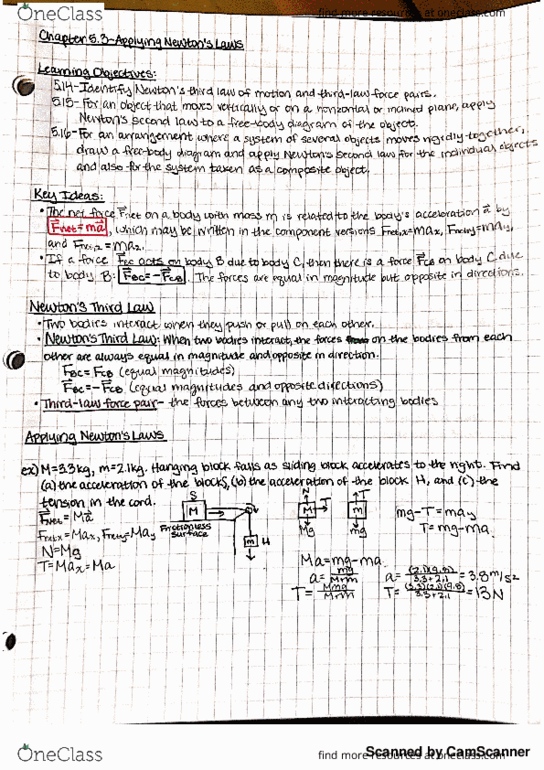 OneClass
find more resources at oneclass.com
Chapter 5.3-Applying Newton's Laws
Learning Objectives:
5.14-Identify Newton's third law of motion and third-law force pairs.
5.15-For an object that moves vertically or on a horizontal or inclined plane, apply
Newton's second law to a free-body diagram of the object.
5.16-For an arrangement where a system of several objects moves rigidly together,
draw a free-body diagram and apply Newton's second law for the individual objects
and also for the system taken as a composite object.
Key Ideas:
• The net force F⃗net on a body with mass m is related to the body's acceleration a⃗ by
F⃗net=ma⃗, which may be written in the component versions Fnet,x=max, Fnet,y=may,
and Fnet,z=maz.
• If a force F⃗BC acts on body B due to body C, then there is a force F⃗CB on body C due
to body B: F⃗BC=-F⃗CB. The forces are equal in magnitude but opposite in directions.
Newton's Third Law
• Two bodies interact when they push or pull on each other.
• Newton's Third Law: When two bodies interact, the forces on the bodies from each
other are always equal in magnitude and opposite in direction.
FBC=FCB (equal magnitudes)
F⃗BC=-F⃗CB (equal magnitudes and opposite directions)
• Third-law force pair- the forces between any two interacting bodies
Applying Newton's Laws
ex) M=3.3kg, m=2.1kg. Hanging block falls as sliding block accelerates to the right. Find
(a) the acceleration of the blocks, (b) the acceleration of the block H, and (c) the
tension in the cord.
F⃗net=Ma⃗
Fnet,x=Max, Fnet,y=May
N=Mg
T=Max=Ma
S
M
Frictionless surface
m H
N
M T
Mg
T
M
mg
mg-T=may
T=mg-ma
Ma=mg-ma
a=mg/M+m
a=(2.1)(9.8)/3.3+2.1=3.8m/s²
T=Mmg/M+m
T=(3.3)(2.1)(9.8)/3.3+2.1=13N
OneClass
find more resources at oneclass.com
Scanned by CamScanner